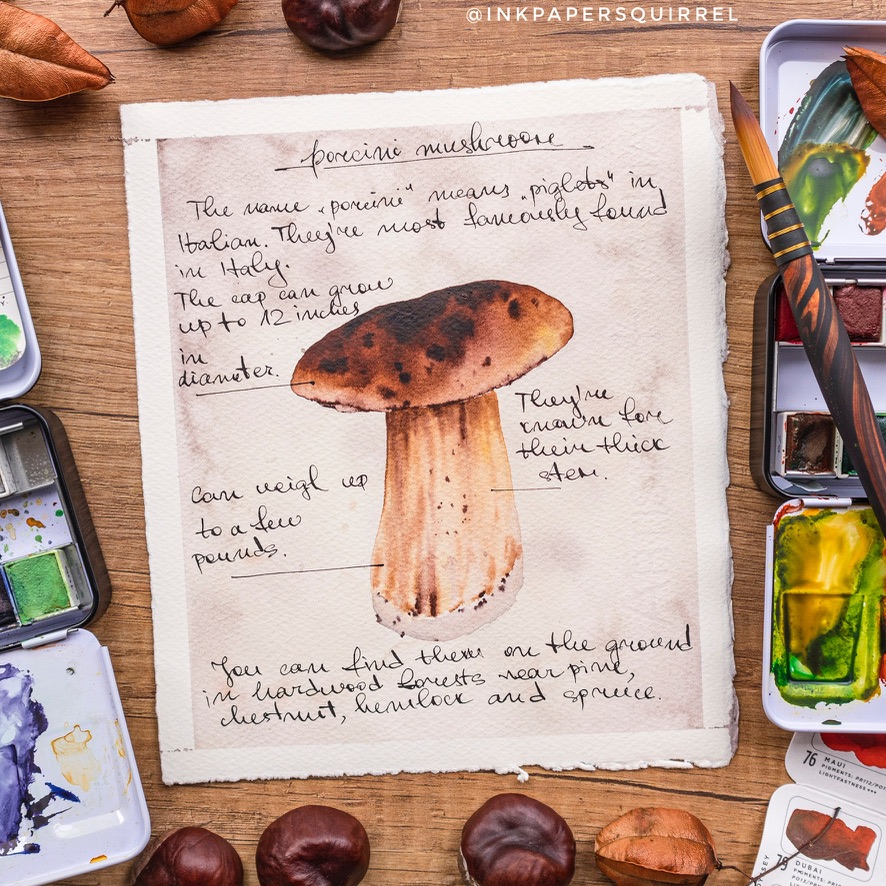 @INKPAPERSQUIRREL
porcini mushroom
The name „porcini" means „piglets" in
Italian. They're most famously found
in Italy.
The cap can grow
up to 12 inches
in
diameter.
They're
known for
their thick
stem.
Can weigh up
to a few
pounds.
You can find them on the ground
in hardwood forests near pine,
chestnut, hemlock and spruce.
76 MAUI
PIGMENTS: PR112/PO
LIGHTFASTNESS+++
79 DUBAI
PIGMENTS: